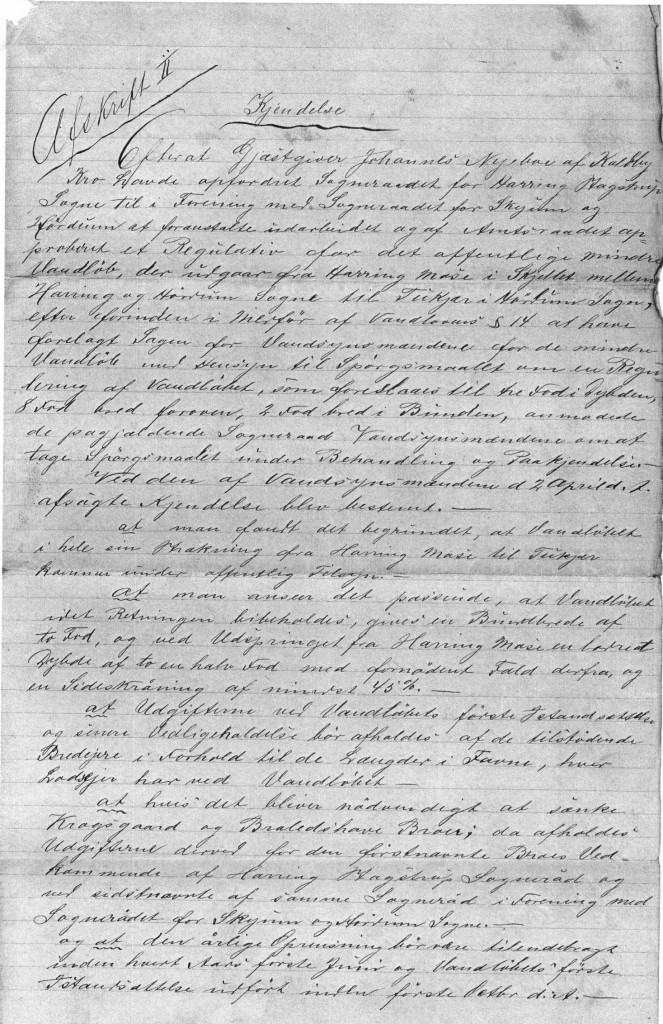 Afskrift II
Kjendelse
Efterat Gjæstgiver Johannes Nyeboe af Kallby
Kro havde opfordret Sogneraadet for Harring Stagstrup
Sogne til i Forening med Sogneraadet for Skjum og
Hørdum at foranstalte udarbeidet og af Amtsraadet ap=
proberet et Regulativ for det offentlige mindre
Vandløb, der udgaar fra Harring Mose i Skjellet mellem
Harring og Hörrum Sogne til Tükjær i Nörrum Sogn,
efter forinden i Medför af Vandlovens § 14 at have
forelagt Sagen for Vandsynsmændene for de mindre
Vandløb med Hensyn til Spörgsmaalet om en Regu
lering af Vandløbet, som foreslaaes til tre Fod i Dybden,
8 Fod bred foroven, 2 Fod bred i Bunden, anmodede
de pagjældende Sogneraad Vandsynsmændene om at
tage Spörgsmaalet under Behandling og Paakjendelse.—
Ved den af Vandsynsmændene d 2 April d. A.
afsagte Kjendelse blev bestemt.—
at man fandt det begrundet, at Vandløbet
i hele sin Strækning fra Harring Mose til Tükjær
kommer under offentlig Tilsyn.—
at man anser det passende, at Vandløbet
idet Retningen bibeholdes, gives en Bundbrede af
to Fod, og ved Udspringet fra Harring Mose en
Dybde af to en halv Fod med fornödent Fald derfra, og
en Sideskråning af mindst 45%.—
at Udgifterne ved Vandløbets förste Istandsættelse
og senere Vedligeholdelse bör afholdes af de tilstödende
Bredejere i Forhold til de Længder i Favne, hver
Lodsejer har ved Vandløbet—
at hvis det bliver nödvendigt at sänke
Krogsgaard og Braledshave Broer; da afholdes
Udgifterne derved for den förstnævnte Broes Ved-
kommende af Harring Stagstrup Sogneråd og
ved sidstnævnte af samme Sogneråd i Forening med
Sognerådet for Skjum og Hörrum Sogne.—
og at den årlige Oprensning bör være tilendebragt
inden hvert Aars förste Juni og Vandløbets förste
Istandsættelse udfört inden förste Octbr d. A.—